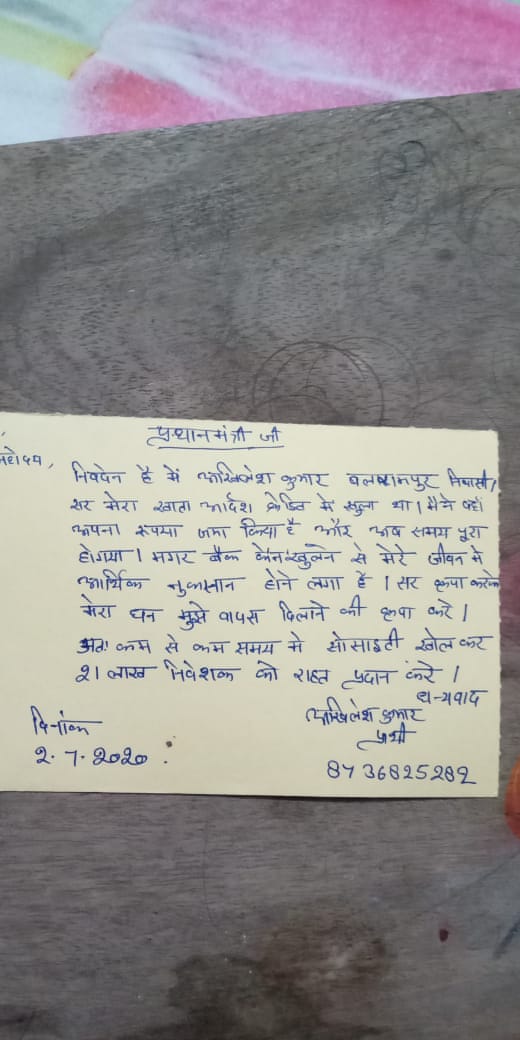 प्रधानमंत्री जी
महोदय,
निवदेन है में अखिलेश कुमार बलरामपुर निवासी,
सर मेरा खाता आर्दश क्रेडिट मे खुला था। मैने वहाँ
अपना रूपया जमा किया है और अब समय पूरा
होगया। मगर बैंक के न खुलने से मेरे जीवन मे
आर्थिक नुकसान होने लगा है। सर कृपा करके
मेरा धन मुझे वापस दिलाने की कृपा करे।
अतः कम से कम समय मे सोसाइटी खोल कर
21 लाख निवेशक को राहत प्रदान करे।
धन्यवाद
अखिलेश कुमार
प्रार्थी
दिनांक
2.7.2020
8736825282